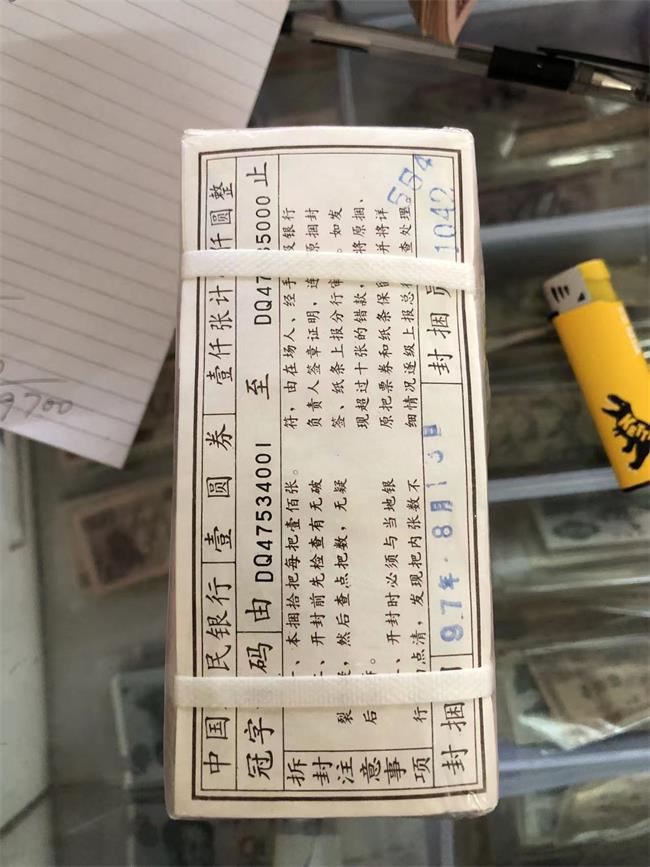 中国 民银行 壹圆券 壹仟张计 仟圆整
冠字 码 由 DQ47534001 至 DQ47 35000 止
拆封注意事项
、本捆拾把每把壹佰张。
、开封前先检查有无破
裂 ，然后查点把数，无疑
后 。
、开封时必须与当地银
行 点清，发现把内张数不
符，由在场人、经手 及银行
负责人签章证明，连 原捆封
签、纸条上报分行审 。如发
现超过十张的错款， 将原捆、
原把票券和纸条保留 并将详
细情况逐级上报总行 查处理。
封捆 97年8月13日 封捆员 1042
9700